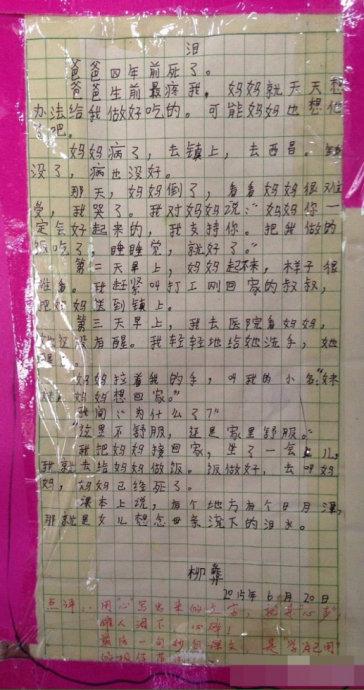 泪
爸爸四年前死了。
爸爸生前最疼我，妈妈就天天想
办法给我做好吃的。可能妈妈也想他
了吧。
妈妈病了，去镇上，去西昌。
没了，病也没好。
那天，妈妈倒了，看看妈妈很难
受，我哭了。我对妈妈说：“妈妈你一
定会好起来的，我支持你。把我做的
饭吃了，睡睡觉，就好了。”
第二天早上，妈妈起不来，样子很
难看。我赶紧叫打工刚回家的叔叔，
把妈妈送到镇上。
第三天早上，我去医院看妈妈，
她还没有醒。我轻轻地给她洗手，她
醒了。
妈妈拉着我的手，叫我的小名：“妹
妹，妈妈想回家。”
我问：“为什么了？”
“这里不舒服，还是家里舒服。”
我把妈妈接回家，坐了一会儿，
我就去给妈妈做饭。饭做好，去叫妈
妈，妈妈已经死了。
课本上说，有个地方有个日月潭，
那就是女儿想念母亲流下的泪水。
柳彝
2015年6月20日
点评：用“心”写出来的文字，就是“心声”
催人泪下，心碎！
最后一句抄自课文，是学自己用